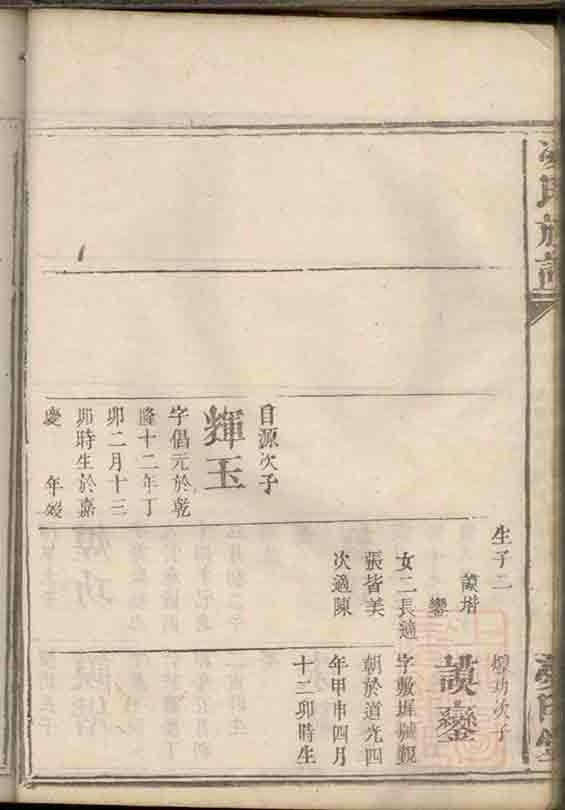 氏族譜
生子二
謨堦
鑾
女二長適
張皆美
次適陳
目源次子
輝玉
字倡元於乾
隆十二年丁
卯二月十三
卯時生於嘉
慶　年
煇功次子
謨鑾
字敷墀號覲
朝於道光四
年甲申四月
十二卯時生